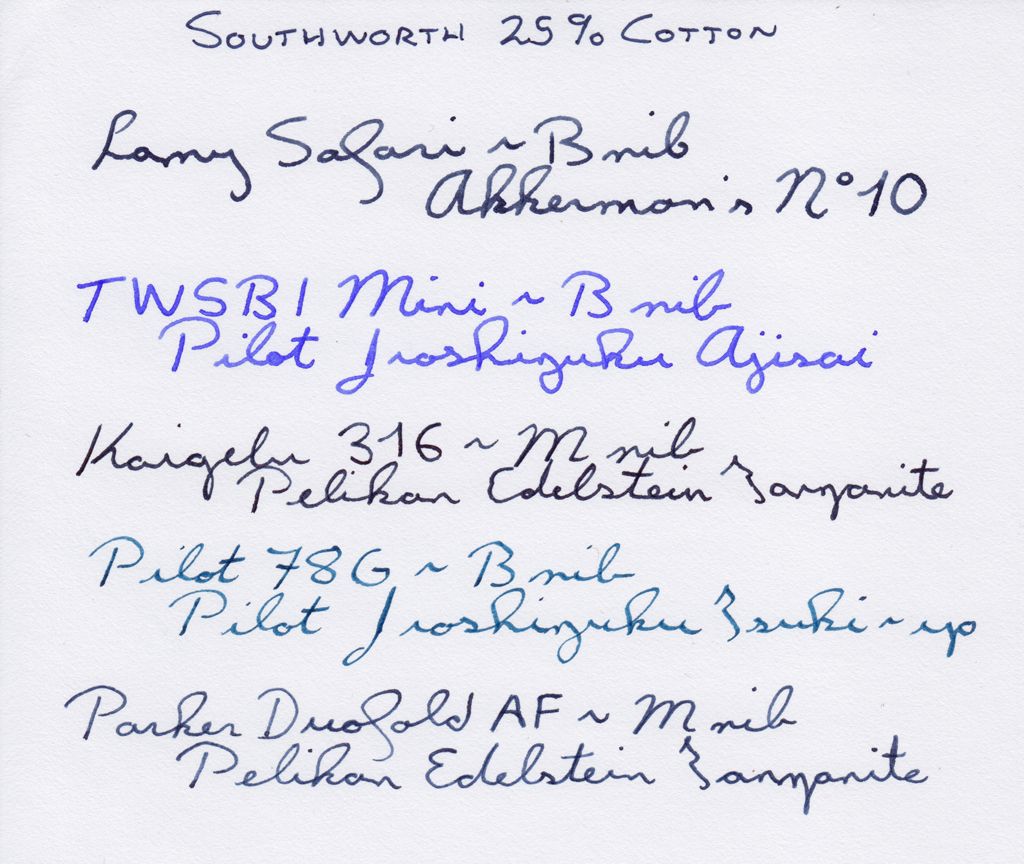 Southworth 25% Cotton
Lamy Safari ~ B nib
Akkerman's N°10
TWSBI Mini ~ B nib
Pilot Iroshizuku Ajisai
Kaigelu 316 ~ M nib
Pelikan Edelstein Tanzanite
Pilot 78G ~ B nib
Pilot Iroshizuku Tsuki~yo
Parker Duofold AF ~ M nib
Pelikan Edelstein Tanzanite